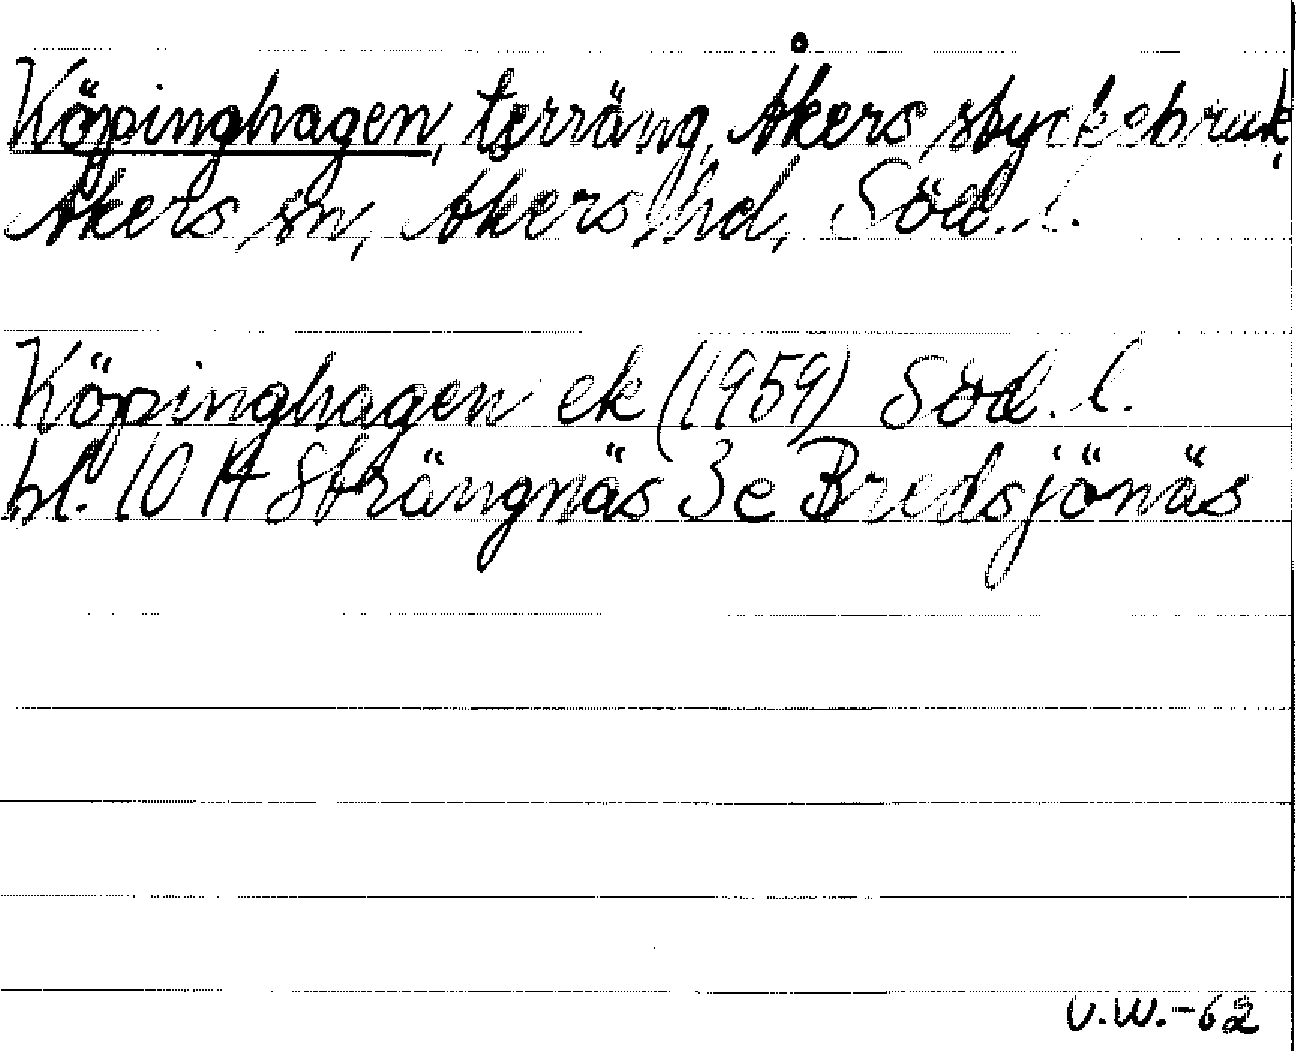 Köpinghagen, terräng, Åkers styckebruk,
Åkers sn, Åkers hd, Söd. l.
Köpinghagen ek (1959) Söd. l.
bl. 10 H Strängnäs 3e Bredsjönäs
V.W.-62